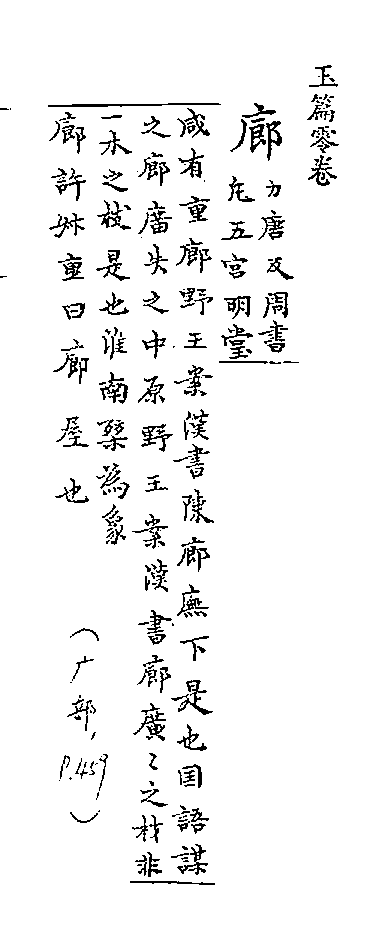 玉篇零卷
廊
力唐反周書
凥五宮明堂
咸有重廊野王案漢書陳廊廡下是也囯語謀
之廊廟失之中原野王案漢書廊廣〻之材非
一木之枝是也淮南桀為象
廊許叔重曰廊屋也
(广部, P.459)